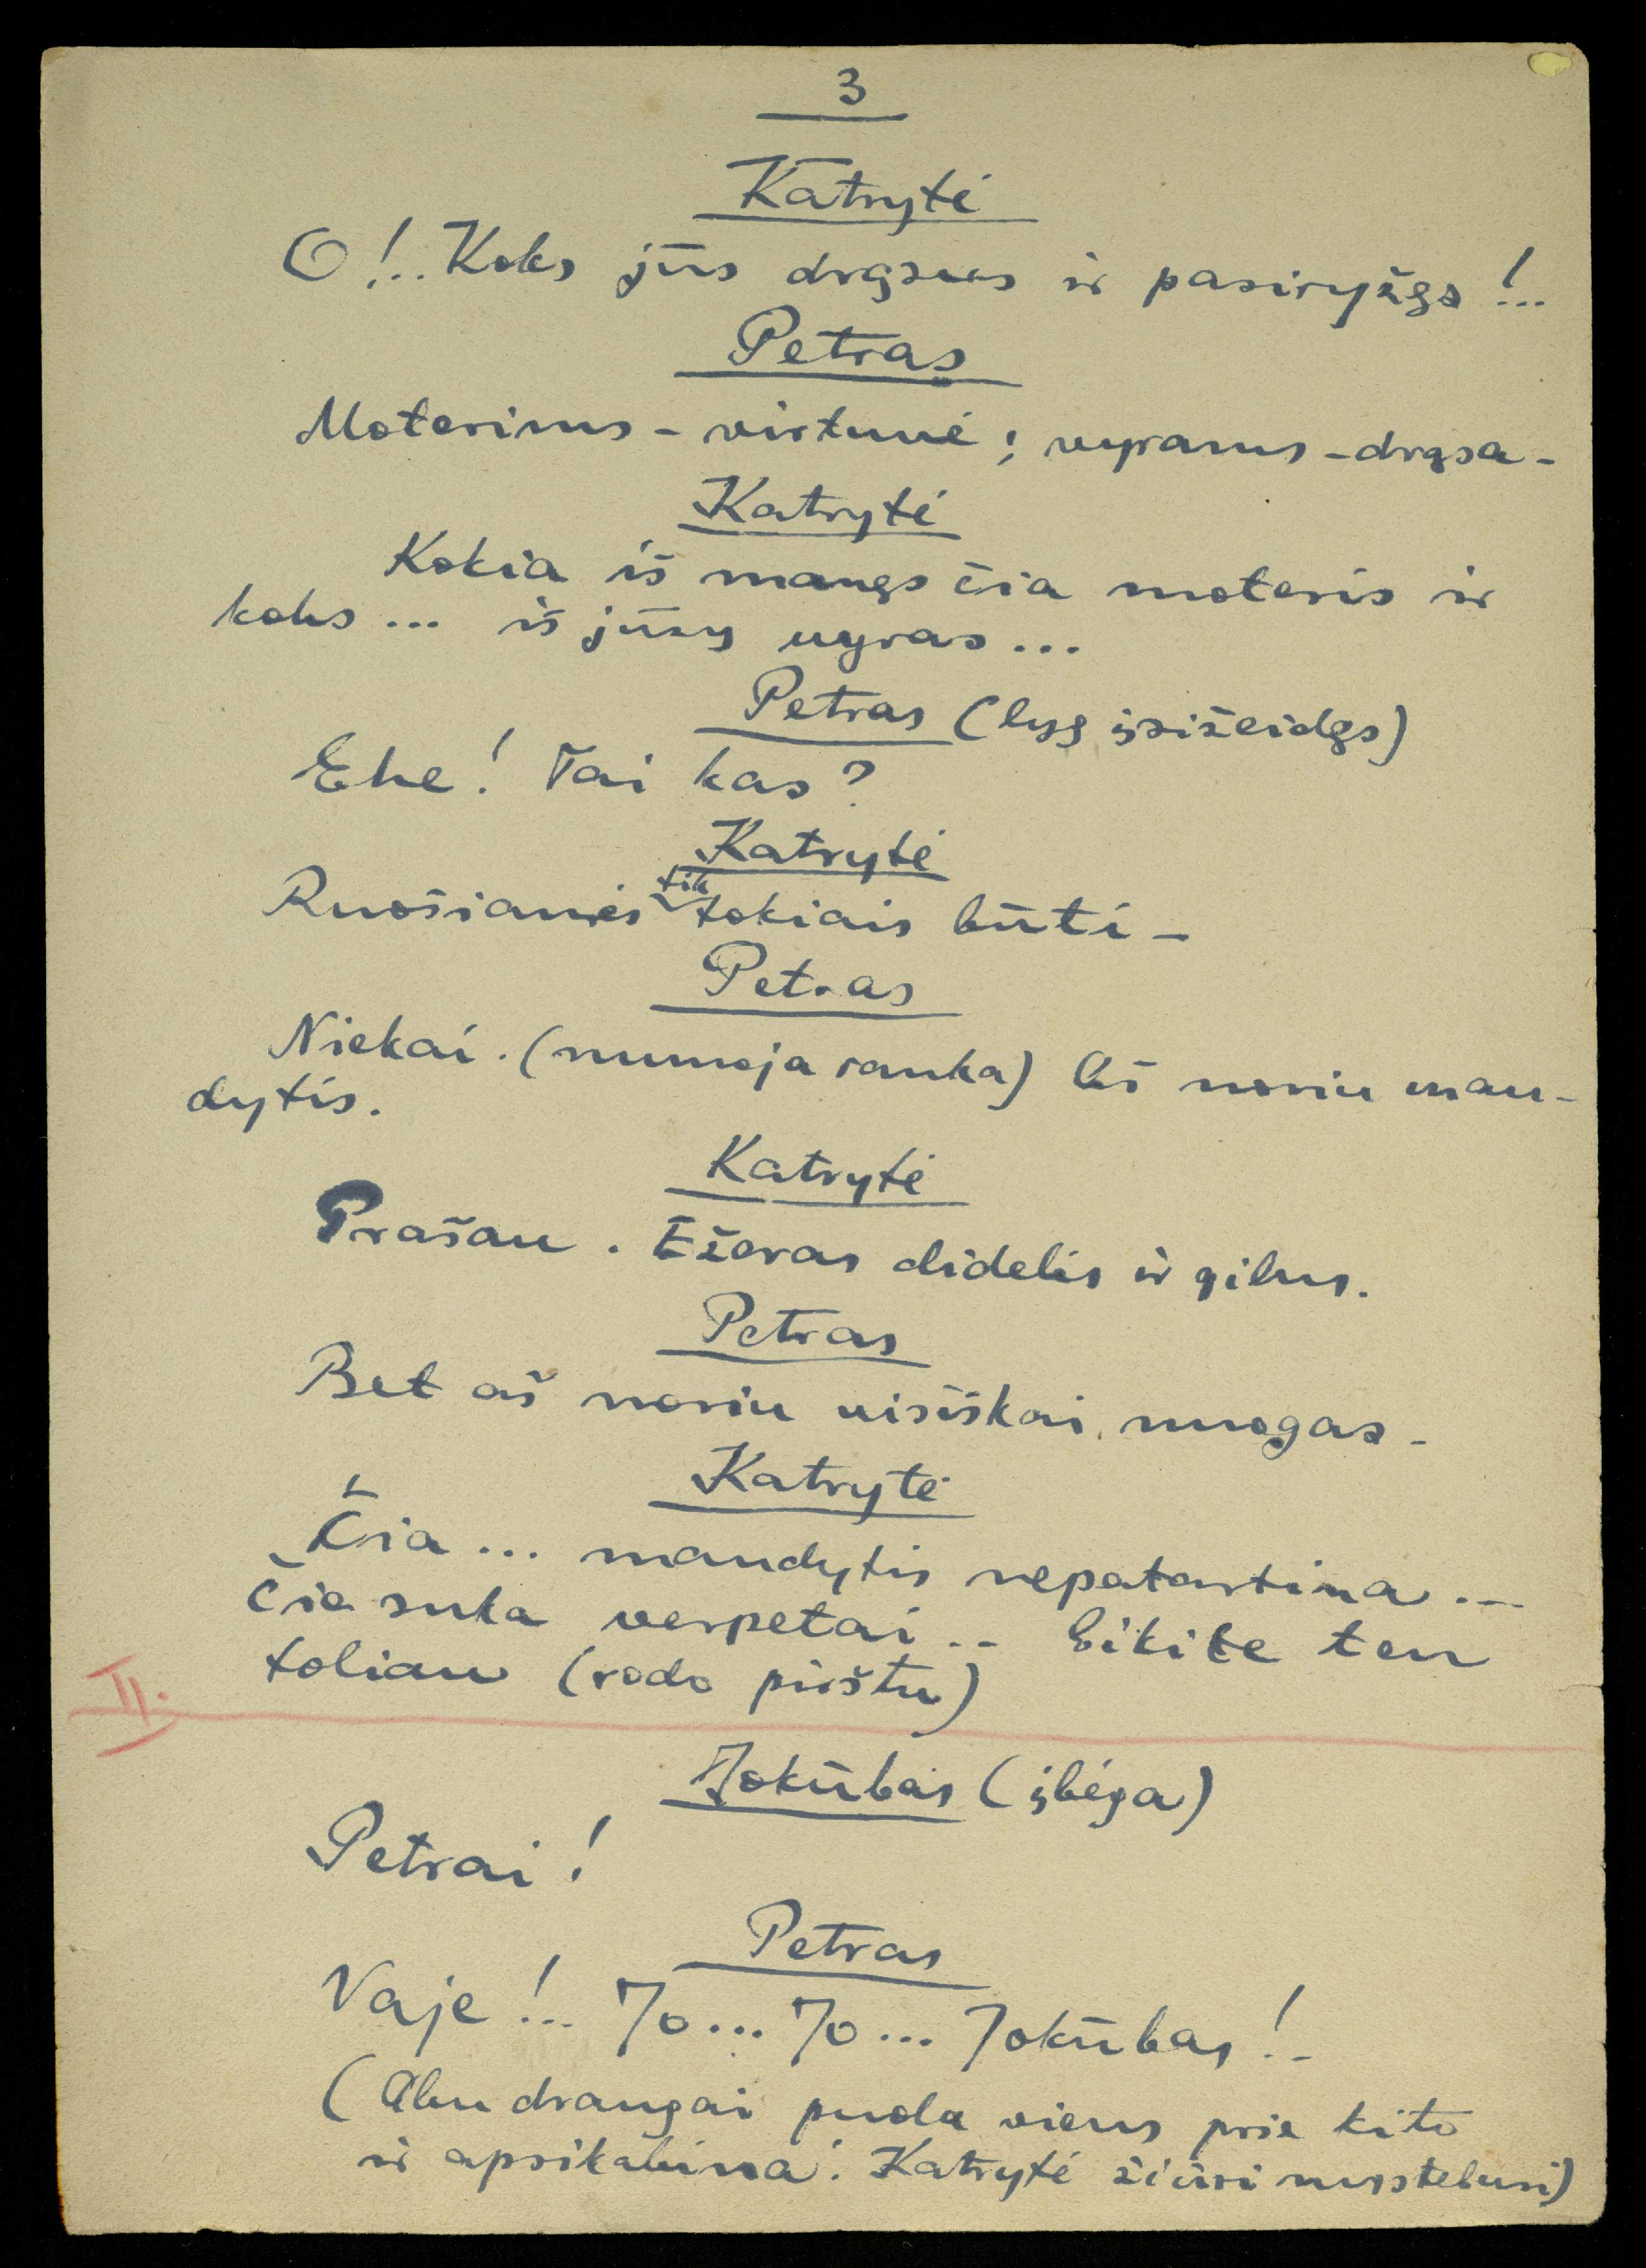 3
Katrytė
O!.. Koks jūs drąsus ir pasiryžęs!..
Petras
Moterims - virtuvė; vyrams - drąsa -
Katrytė
Kokia iš manęs čia moteris ir
koks ... iš jūsų vyras ...
Petras (lyg įsižeidęs)
Ehe! Tai kas?
Katrytė
Ruošiamės tik tokiais būti -
Petras
Niekai. (numoja ranka) Aš noriu mau-
dytis.
Katrytė
Prašau. Ežeras didelis ir gilus.
Petras
Bet aš noriu visiškai nuogas -
Katrytė
Čia ... maudytis nepatartina ..
Čia suka verpetai .. Eikite ten
toliau (rodo pirštu)
II.
Jokūbas (įbėga)
Petrai!
Petras
Vaje!.. Jo... Jo... Jokūbas!..
(Abu draugai puola viens prie kito
ir apsikabina. Katrytė žiūri nustebusi)